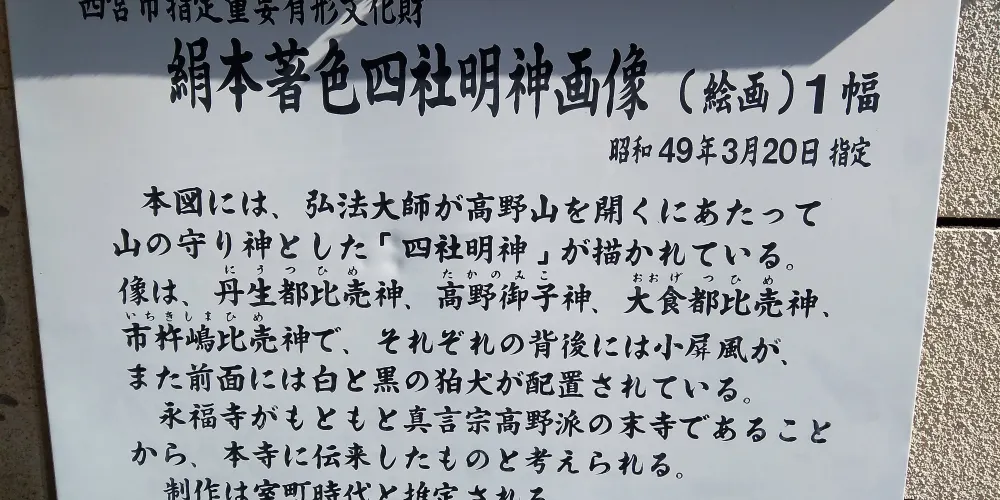 西宮市指定重要有形文化財
絹本著色四社明神画像（絵画）1幅
昭和49年3月20日指定
本図には、弘法大師が高野山を開くにあたって
山の守り神とした「四社明神」が描かれている。
にうつひめ たかのみこ おおげつひめ
像は、丹生都比売神、高野御子神、大食都比売神、
いちきしまひめ
市杵嶋比売神で、それぞれの背後には小屏風が、
また前面には白と黒の狛犬が配置されている。
永福寺がもともと真言宗高野派の末寺であること
から、本寺に伝来したものと考えられる。
制作は室町時代と推定される